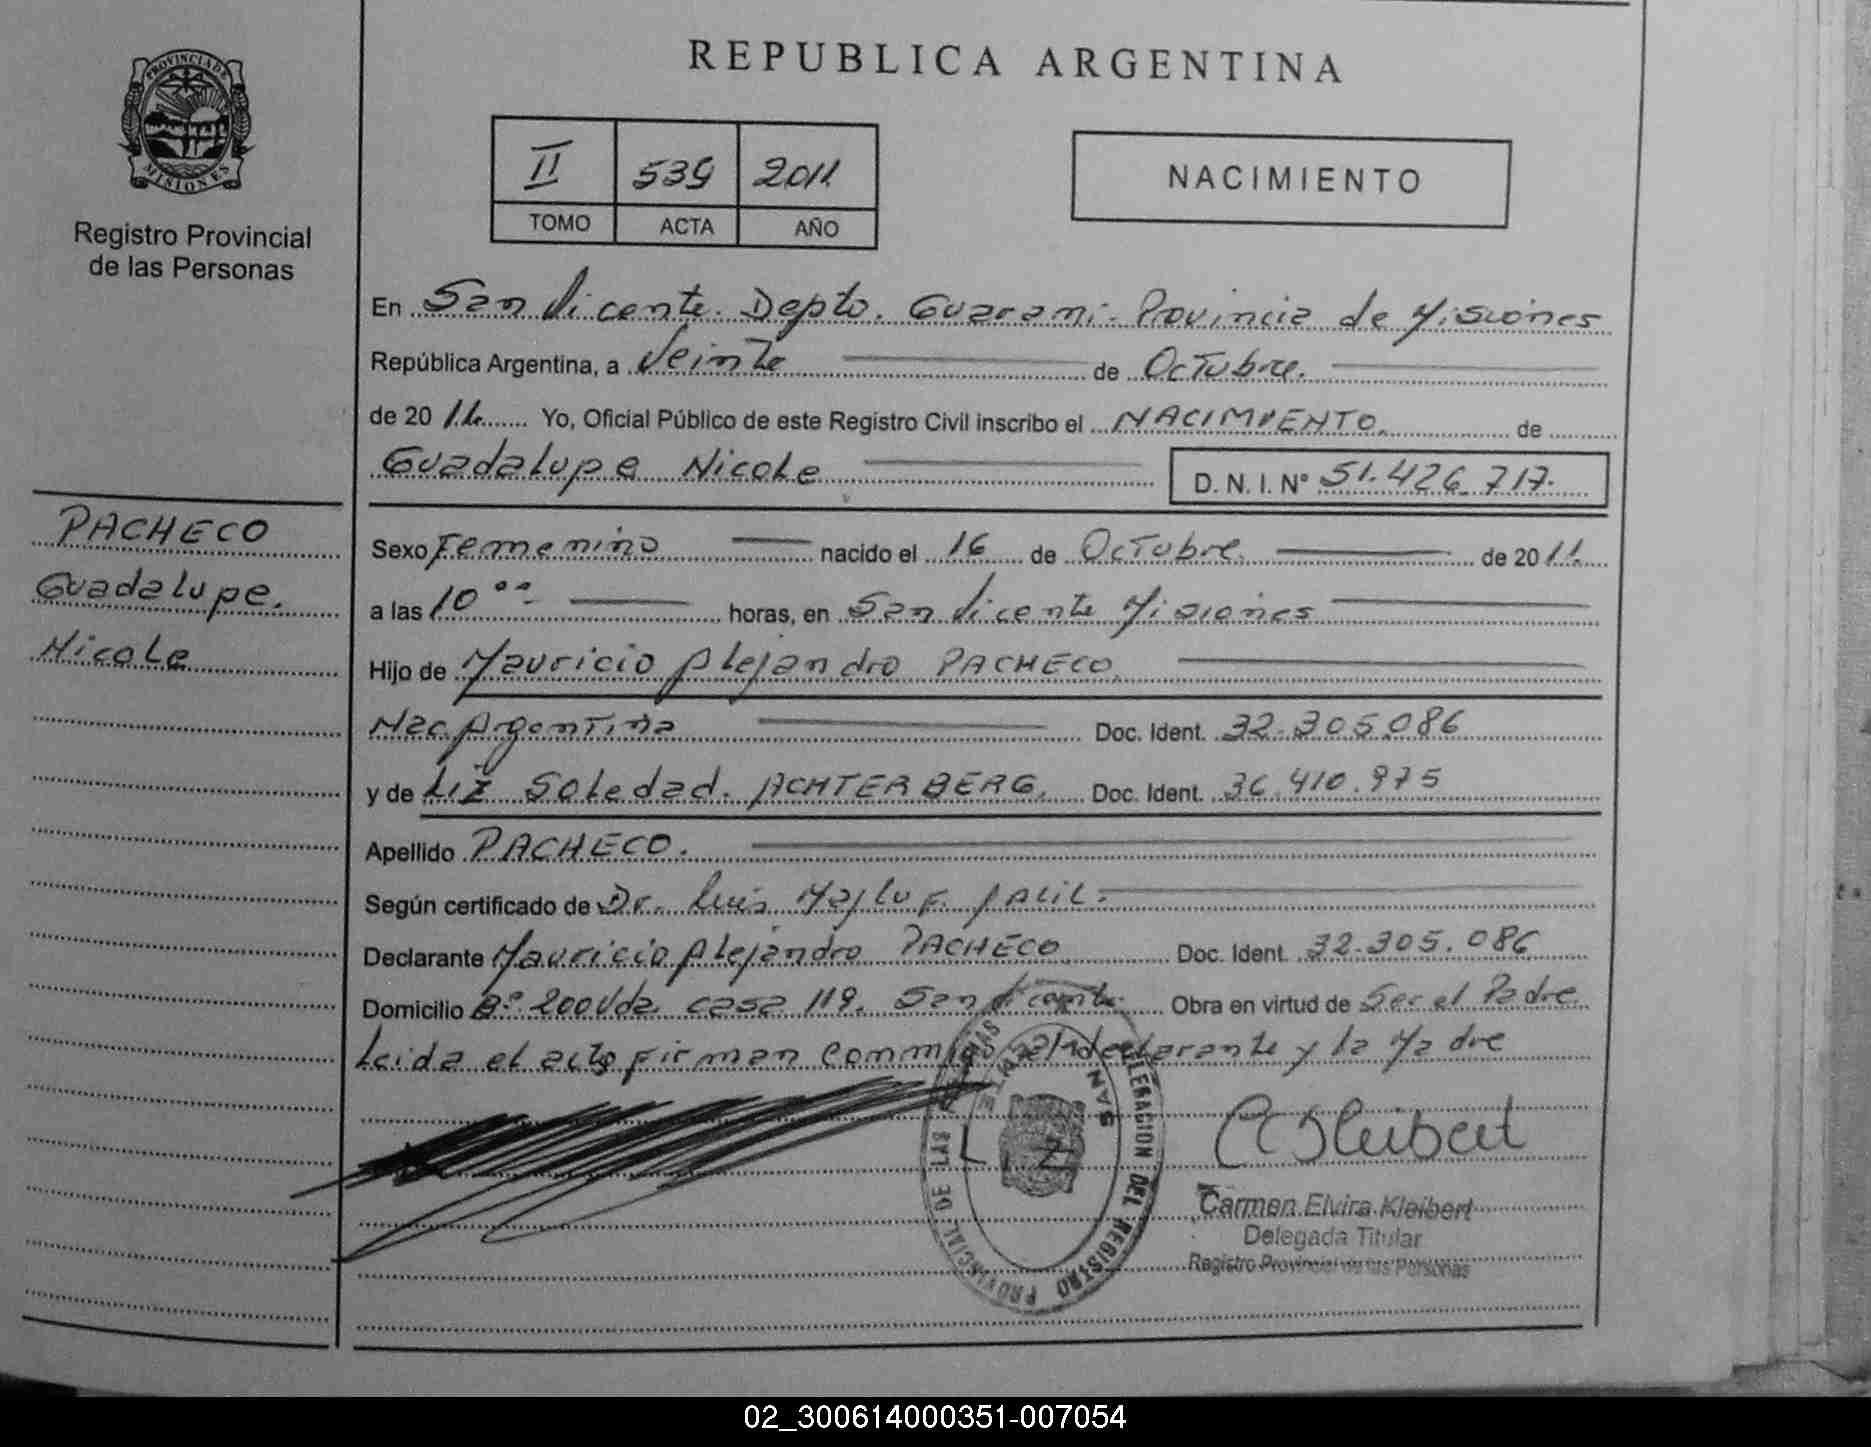 REPUBLICA ARGENTINA
PROVINCIA DE
MISIONES
Registro Provincial
de las Personas
II 539 2011
TOMO ACTA AÑO
NACIMIENTO
En San Vicente. Depto. Guarani. Provincia de Misiones
República Argentina, a Veinte de Octubre.
de 20 11 Yo, Oficial Público de este Registro Civil inscribo el NACIMIENTO. de
Guadalupe Nicole D. N. I. Nº 51.426.717.
PACHECO
Guadalupe.
Nicole
Sexo Femenino nacido el 16 de Octubre. de 20 11.
a las 10 ºº horas, en San Vicente Misiones
Hijo de Mauricio Alejandro PACHECO.
Nac. Argentina Doc. Ident. 32.305.086
y de Liz Soledad. ACHTERBERG. Doc. Ident. 36.410.975
Apellido PACHECO.
Según certificado de Dr. Luis
Declarante Mauricio Alejandro PACHECO Doc. Ident. 32.305.086
Domicilio Bº. 200 Vdas. casa 119. San Vicente. Obra en virtud de Ser el Padre
Leida el acto firman commigo el declarante y la Madre
DELEGACION DEL REGISTRO PROVINCIAL DE LAS
SAN
Carmen Elvira Kleibert
Delegada Titular
Registro Provincial de las Personas
02_300614000351-007054